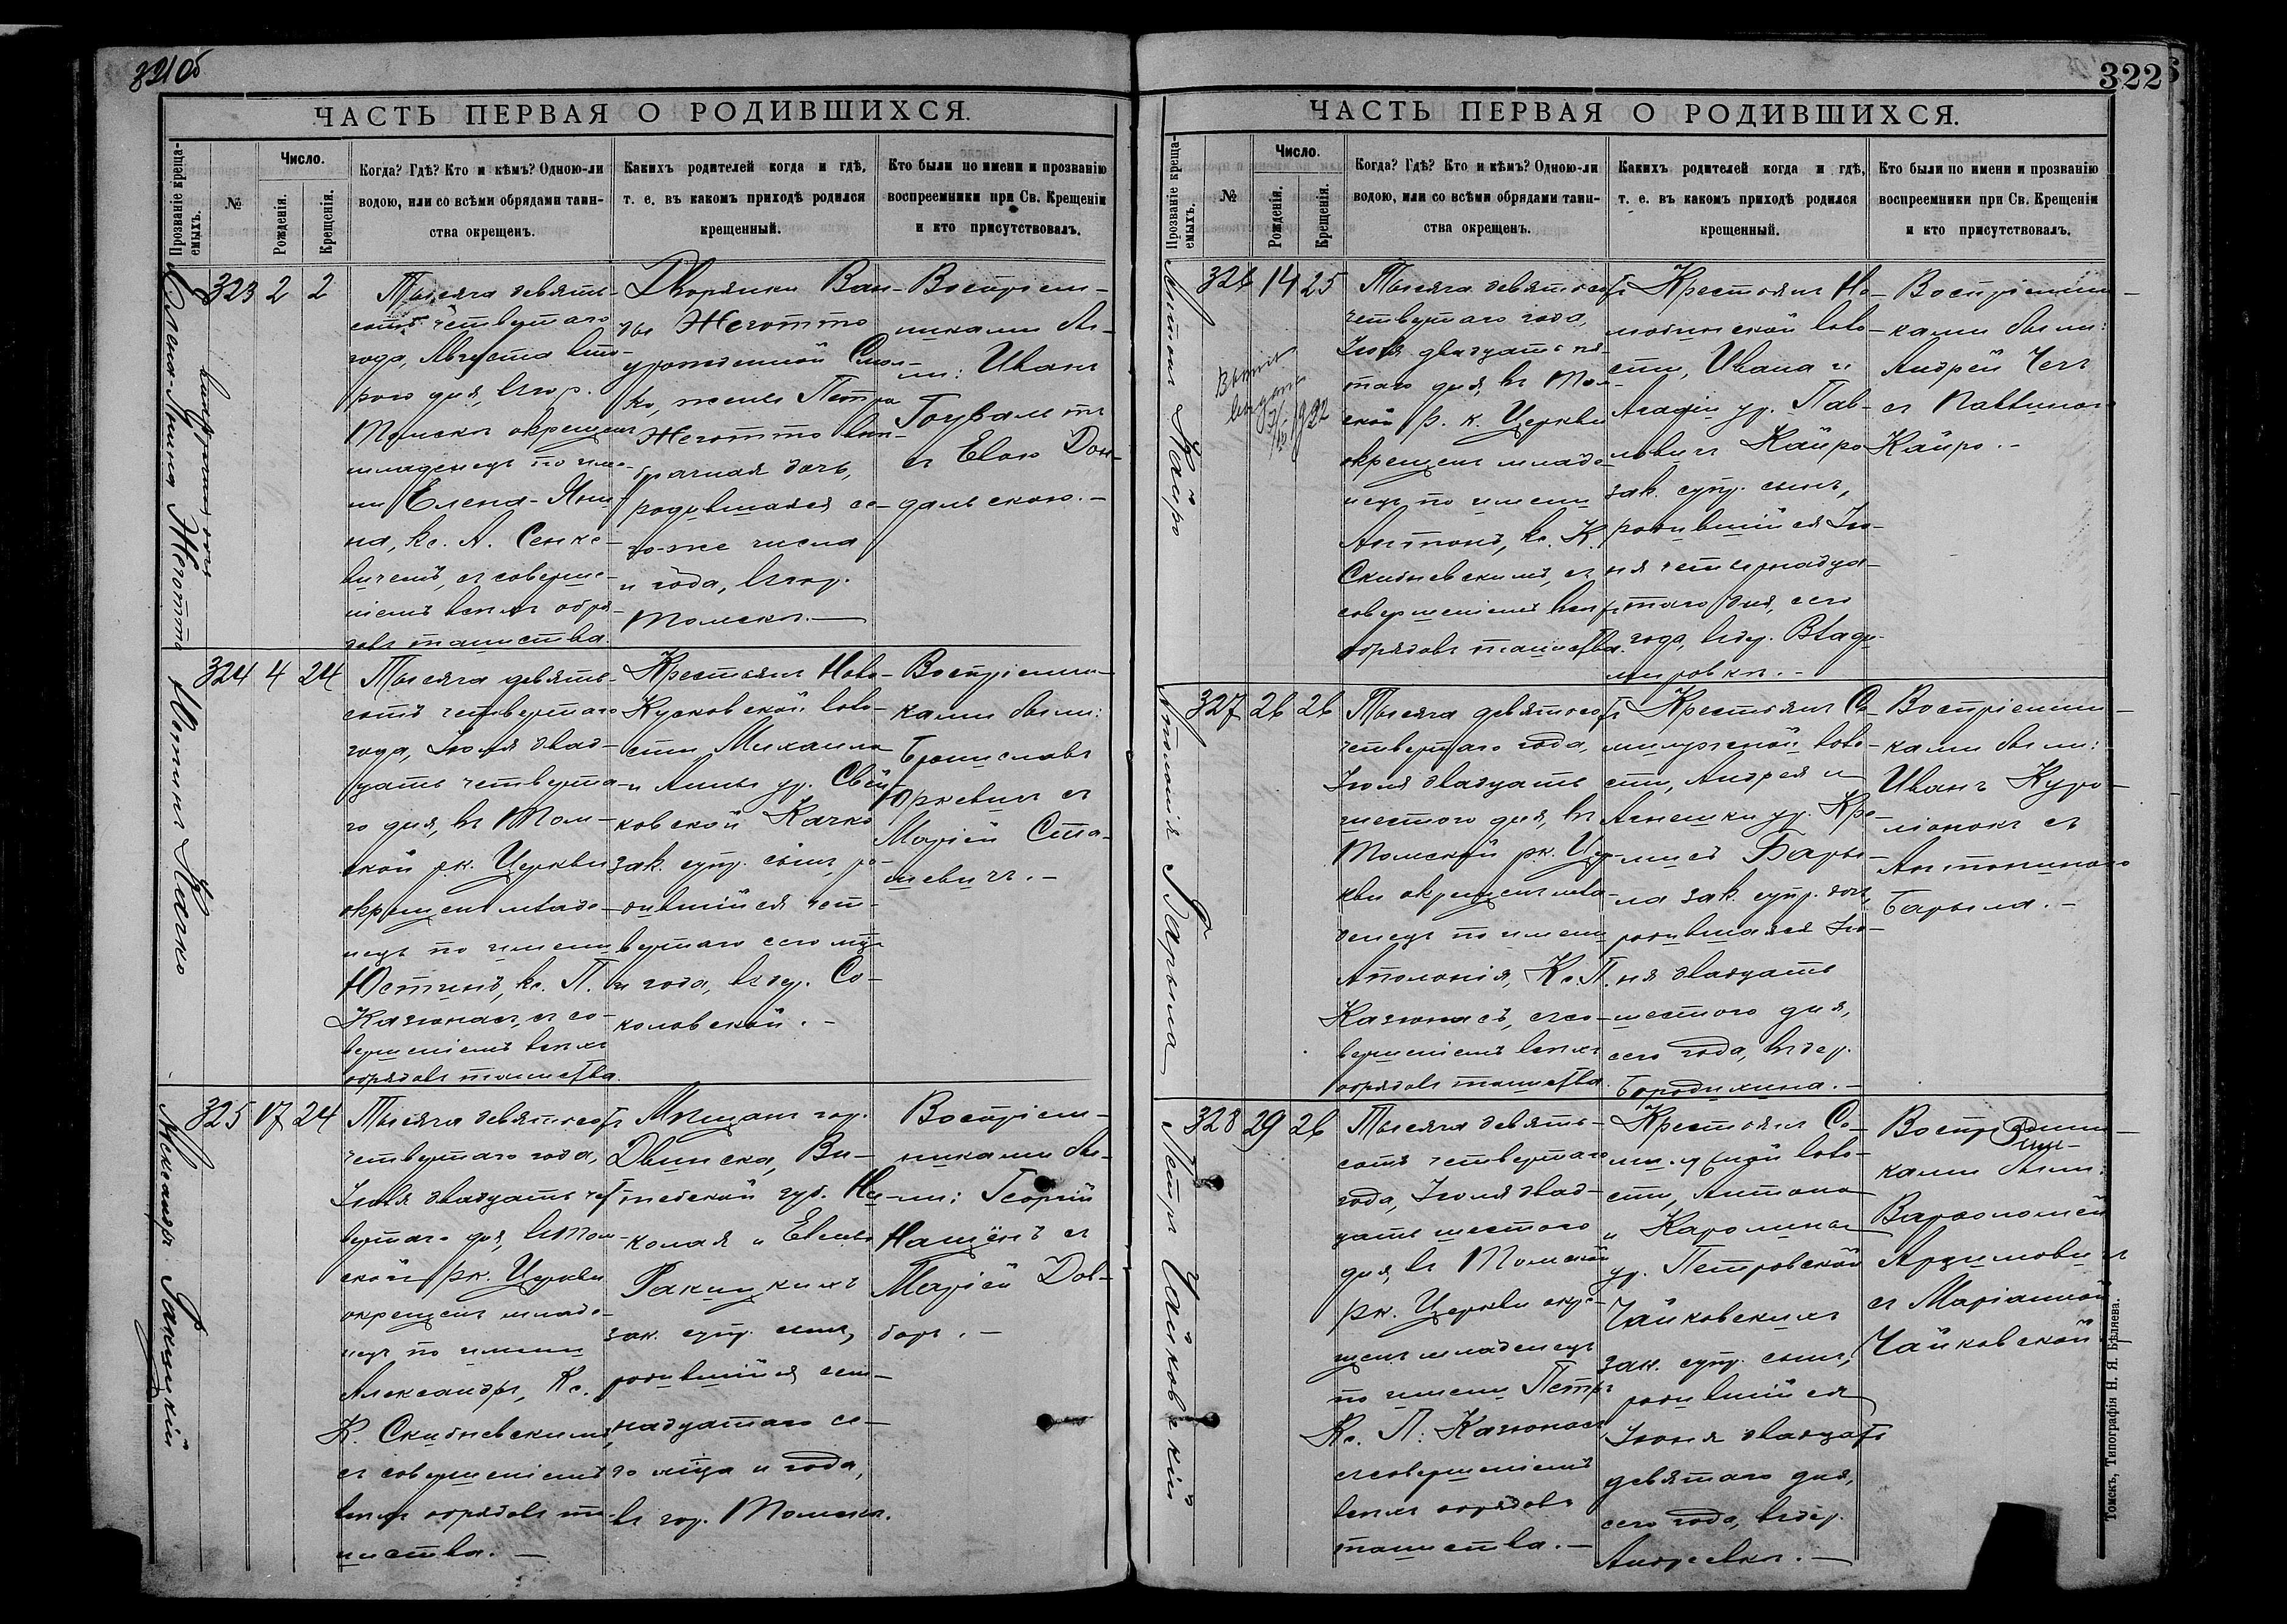 321об
ЧАСТЬ ПЕРВАЯ О РОДИВШИХСЯ.
Прозваніе креща-
емыхъ.
№
Число.
Рожденія.
Крещенія.
Когда? Гдѣ? Кто и кѣмъ? Одною-ли
водою, или со всѣми обрядами таин-
ства окрещенъ.
Какихъ родителей когда и гдѣ,
т. е. въ какомъ приходѣ родился
крещенный.
Кто были по имени и прозванію
воспреемники при Св. Крещеніи
и кто присутствовалъ.
Елена-Янина Жеготто
внѣбрачная дочь
323 2 2
Тысяча девять-
сотъ четвертаго
года, Августа вто-
рого дня, въ гор.
Томскѣ окрещенъ
младенецъ по име-
ни Елена-Яни-
на, Кс. А. Сенке-
вичемъ, съ соверше-
ніемъ всѣхъ обря-
довъ таинства.
Дворянки Ван-
ды Жеготто
урожденной
жены Петра
Жеготто внѣ-
брачная дочь,
родившаяся се-
го-же числа
и года, въ гор.
Томскѣ.—
Воспріем-
никами бы-
ли: Иванъ
съ Евою Дом-
бальскою.—
Юстинъ Качко
324 4 24
Тысяча девять-
сотъ четвертаго
года, Іюля двад-
цать четверта-
го дня, въ Том-
ской р.к. Церкви
окрещенъ младе-
нецъ по имени
Юстинъ, кс. П.
Казюнасъ, съ со-
вершеніемъ всѣхъ
обрядовъ таинства.
Крестьянъ Ново-
Кусковской воло-
сти Михаила
и Анны ур.
Качко
зак. супр. сынъ, ро-
дившійся чет-
вертаго сего мца
и года, въ дер. Со-
коловской.—
Воспріемни-
ками были:
Брониславъ
Юркевичъ съ
Маріей Ста-
шевичъ.—
Александръ Ракицкій
325 17 24
Тысяча девятьсотъ
четвертаго года,
Іюля двадцать чет
вертаго дня, въ Том-
ской р.к. Церкви
окрещенъ младе-
нецъ по имени
Александръ, Кс.
К. Скибневскимъ,
съ совершеніемъ
всѣхъ обрядовъ та-
инства.—
Мѣщанъ гор.
Двинска, Ви-
тебской губ. Ни-
колая и Елены
Ракицкихъ
зак. супр. сынъ,
родившійся сем-
надцатаго се-
го мѣца и года,
въ гор. Томскѣ.
Воспріем-
никами бы-
ли: Георгій
Нащёнъ съ
Маріей Дов-
боръ.—
322
ЧАСТЬ ПЕРВАЯ О РОДИВШИХСЯ.
Прозваніе креща-
емыхъ.
№
Число.
Рожденія.
Крещенія.
Когда? Гдѣ? Кто и кѣмъ? Одною-ли
водою, или со всѣми обрядами таин-
ства окрещенъ.
Какихъ родителей когда и гдѣ,
т. е. въ какомъ приходѣ родился
крещенный.
Кто были по имени и прозванію
воспреемники при Св. Крещеніи
и кто присутствовалъ.
Антонъ Кайро
выдана
1922
326 14 25
Тысяча девятьсотъ
четвертаго года,
Іюля двадцать пя-
таго дня, въ Том-
ской р. к. Церкви
окрещенъ младе-
нецъ по имени
Антонъ, кс. К.
Скибневскимъ, съ
совершеніемъ всѣхъ
обрядовъ таинства.
Крестьянъ
воло-
сти, Ивана и
Агафіи ур. Пав-
ловичъ Кайро
зак. супр. сынъ,
родившійся Ію-
ня четырнадца-
таго дня, сего
года, въ дер. Влади-
мировкѣ.—
Воспріемни-
ками были:
Андрей
съ
Кайро.—
Аполонія Барыла
327 26 26
Тысяча девятьсотъ
четвертаго года,
Іюля двадцать
шестого дня, въ
Томской р.к. Цер-
кви окрещенъ мла-
денецъ по имени
Аполонія, Кс. П.
Казюнасъ, съ со-
вершеніемъ всѣхъ
обрядовъ таинства.
Крестьянъ Се-
милужской воло-
сти, Андрея и
Агнешки ур.
Бары-
ла зак. супр. дочь,
родившаяся Ію-
ня двадцать
шестого дня,
сего года, въ дер.
Бородихина.—
Воспріемни-
ками были:
Иванъ Куро-
съ
Антониною
Барыла.—
Петръ Чайковскій
328 29 26
Тысяча девять-
сотъ четвертаго
года, Іюля двад-
цать шестого
дня, въ Томской
р.к. Церкви окре-
щенъ младенецъ
по имени Петръ
Кс. П. Казюнасъ
съ совершеніемъ
всѣхъ обрядовъ
таинства.—
Крестьянъ Се-
воло-
сти, Антона
и Каролины
ур. Петровской
Чайковскихъ
зак. супр. сынъ,
родившійся
Іюня двадцать
девятаго дня,
сего года, въ дер.
Андреевкѣ.—
ками были:
Варфоломей
съ Маріанной
Чайковской
Томскъ, Типографія Н. Я. Бѣляева.